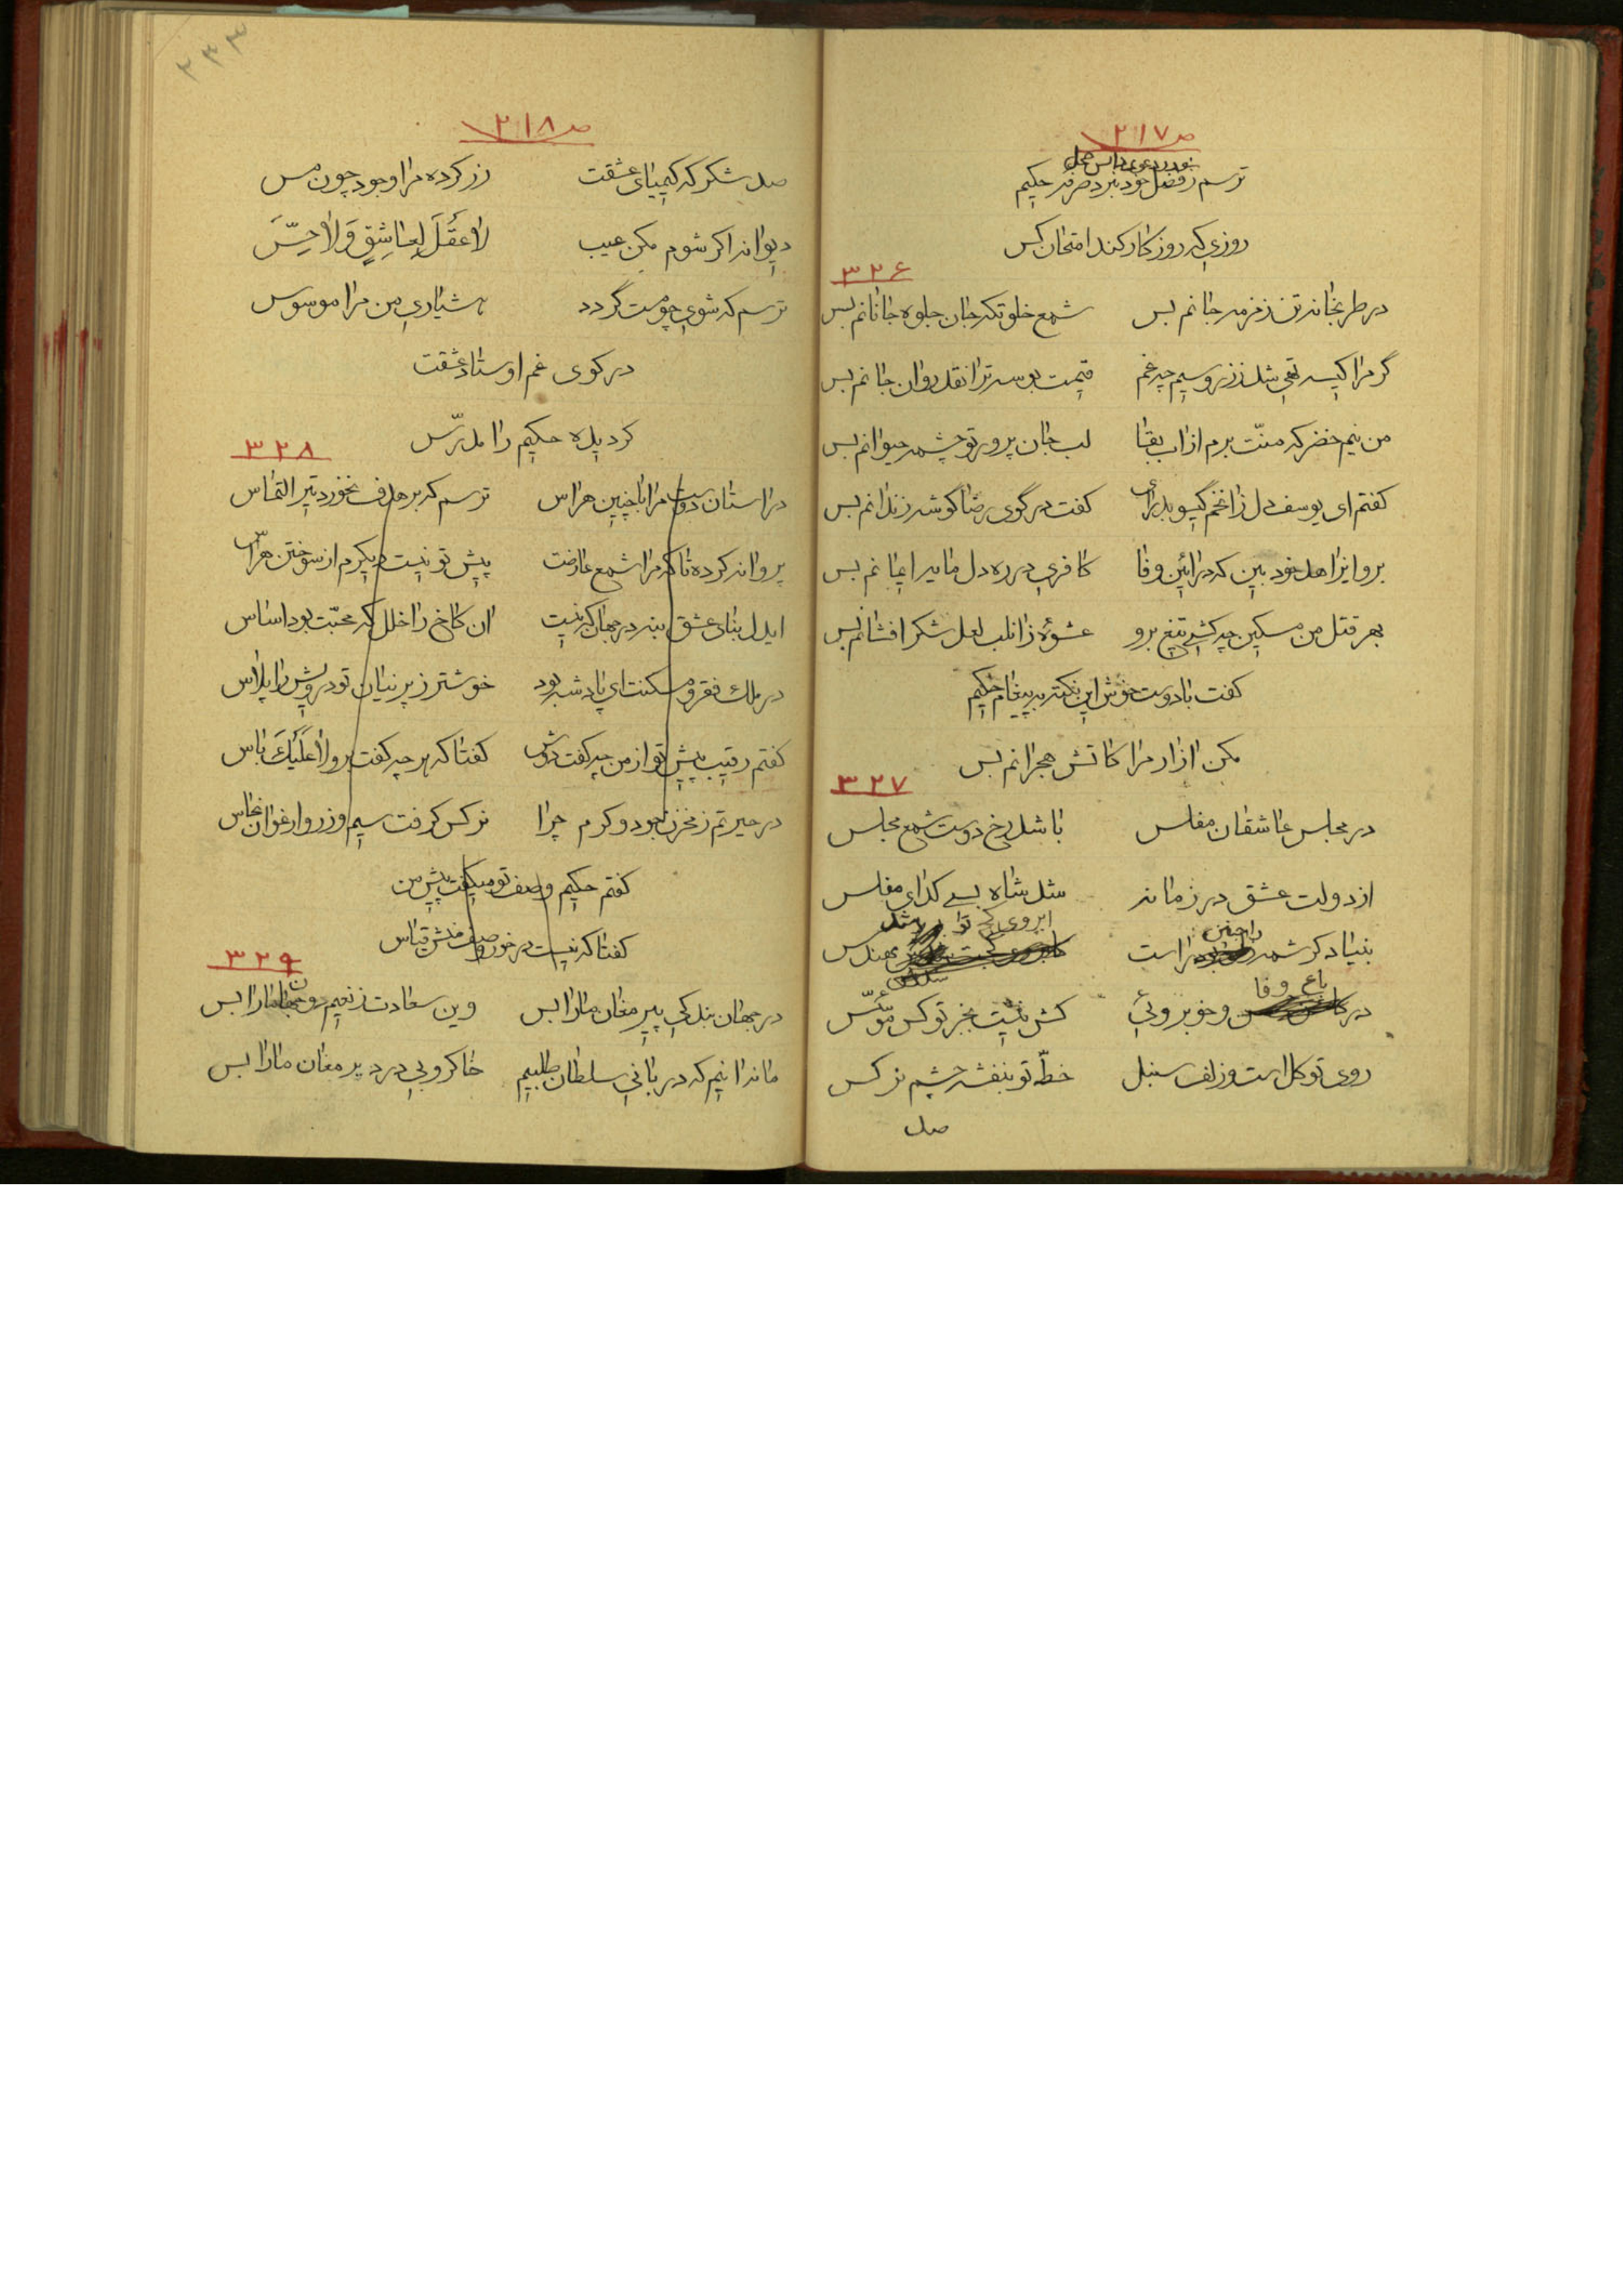 ص ٢١٧
ترسم ز فضل خود نبرد صرفه حکیم
روزی که روزگار کند امتحان کس
٣٢۶
در طربخانه تن زمزمه جانم بس شمع خلوتکه جان جلوه جانانم بس
گر مرا کیسه تهی شد ز زر و سیم چه غم قیمت بوسه ترا نقد روان جانم بس
من نیم خضر که منّت برم از اب بقا لب جان پرور تو چشمه حیوانم بس
کفتم ای یوسف دل زا نخم گیسو بدرای کفت در گوی رضا گوشه زندانم بس
برو ایزاهد خود بین که در ائین وفا کافری در ره دلدار ایمانم بس
بهر قتل من مسکین چه کشی تیغ برو عشوهٔ زانلب لعل شکر افشانم بس
کفت با دوست خوش این نکته به پیغام حکیم
مکن ازار مرا کاتش هجرانم بس
٣٢٧
در مجلس عاشقان مفلس تا شد رخ دوست شمع مجلس
از دولت عشق در زمانه شد شاه بسی کدای مفلس
ابروی تو شد
بنیاد کرشمه را است مهندس
باغ وفا
در و خوبروئی کش نیست بجز تو کس مؤسّس
روی تو کل است و زلف سنبل خطّ تو بنفشه چشم نرکس
صد
٢٣٣
ص ٢١٨
صد شکر که کیمیای عشقت زر کرده مرا وجود چون مس
دیوانه اکر شوم مکن عیب لاعَقلَ لِعاشِقٍ وَلاحِسَّ
ترسم که شوی چو مست گردد هشیاری من مرا موسوس
در کوی غم اوستاد عشقت
کرد پله حکیم را مدرّس
٣٢٨
در استان دوست مرا با چنین هراس ترسم که بر هدف نخورد تیر التماس
پروانه کرده تا که مرا شمع عارضت پیش تو نیست دیکرم از سوختن هراس
ایدل بنای عشق بنه در جهان که نیست ان کاخ را خلل که محبّت بود اساس
در ملک فقر و مسکنت ای پادشه بود خوشتر ز پرنیان تو درویش را پلاس
کفتم رقیب پیش تو از من چه کفت دوش کفتا که هر چه کفت برو لاعَلَیکَ باس
در حیرتم ز مخزن جود و کرم چرا نرکس کرفت سیم و زر و ارغوان نحاس
کفتم حکیم وصف تو میکفت پیش من
کفتا که نیست در خور وصف منش قیاس
٣٢٩
در جهان بندکی پیر مغان ما را بس وین سعادت ز نعیم دو جهان ما را بس
ما نه انیم که دربانی سلطان طلبیم خاکروبی در دیر مغان ما را بس